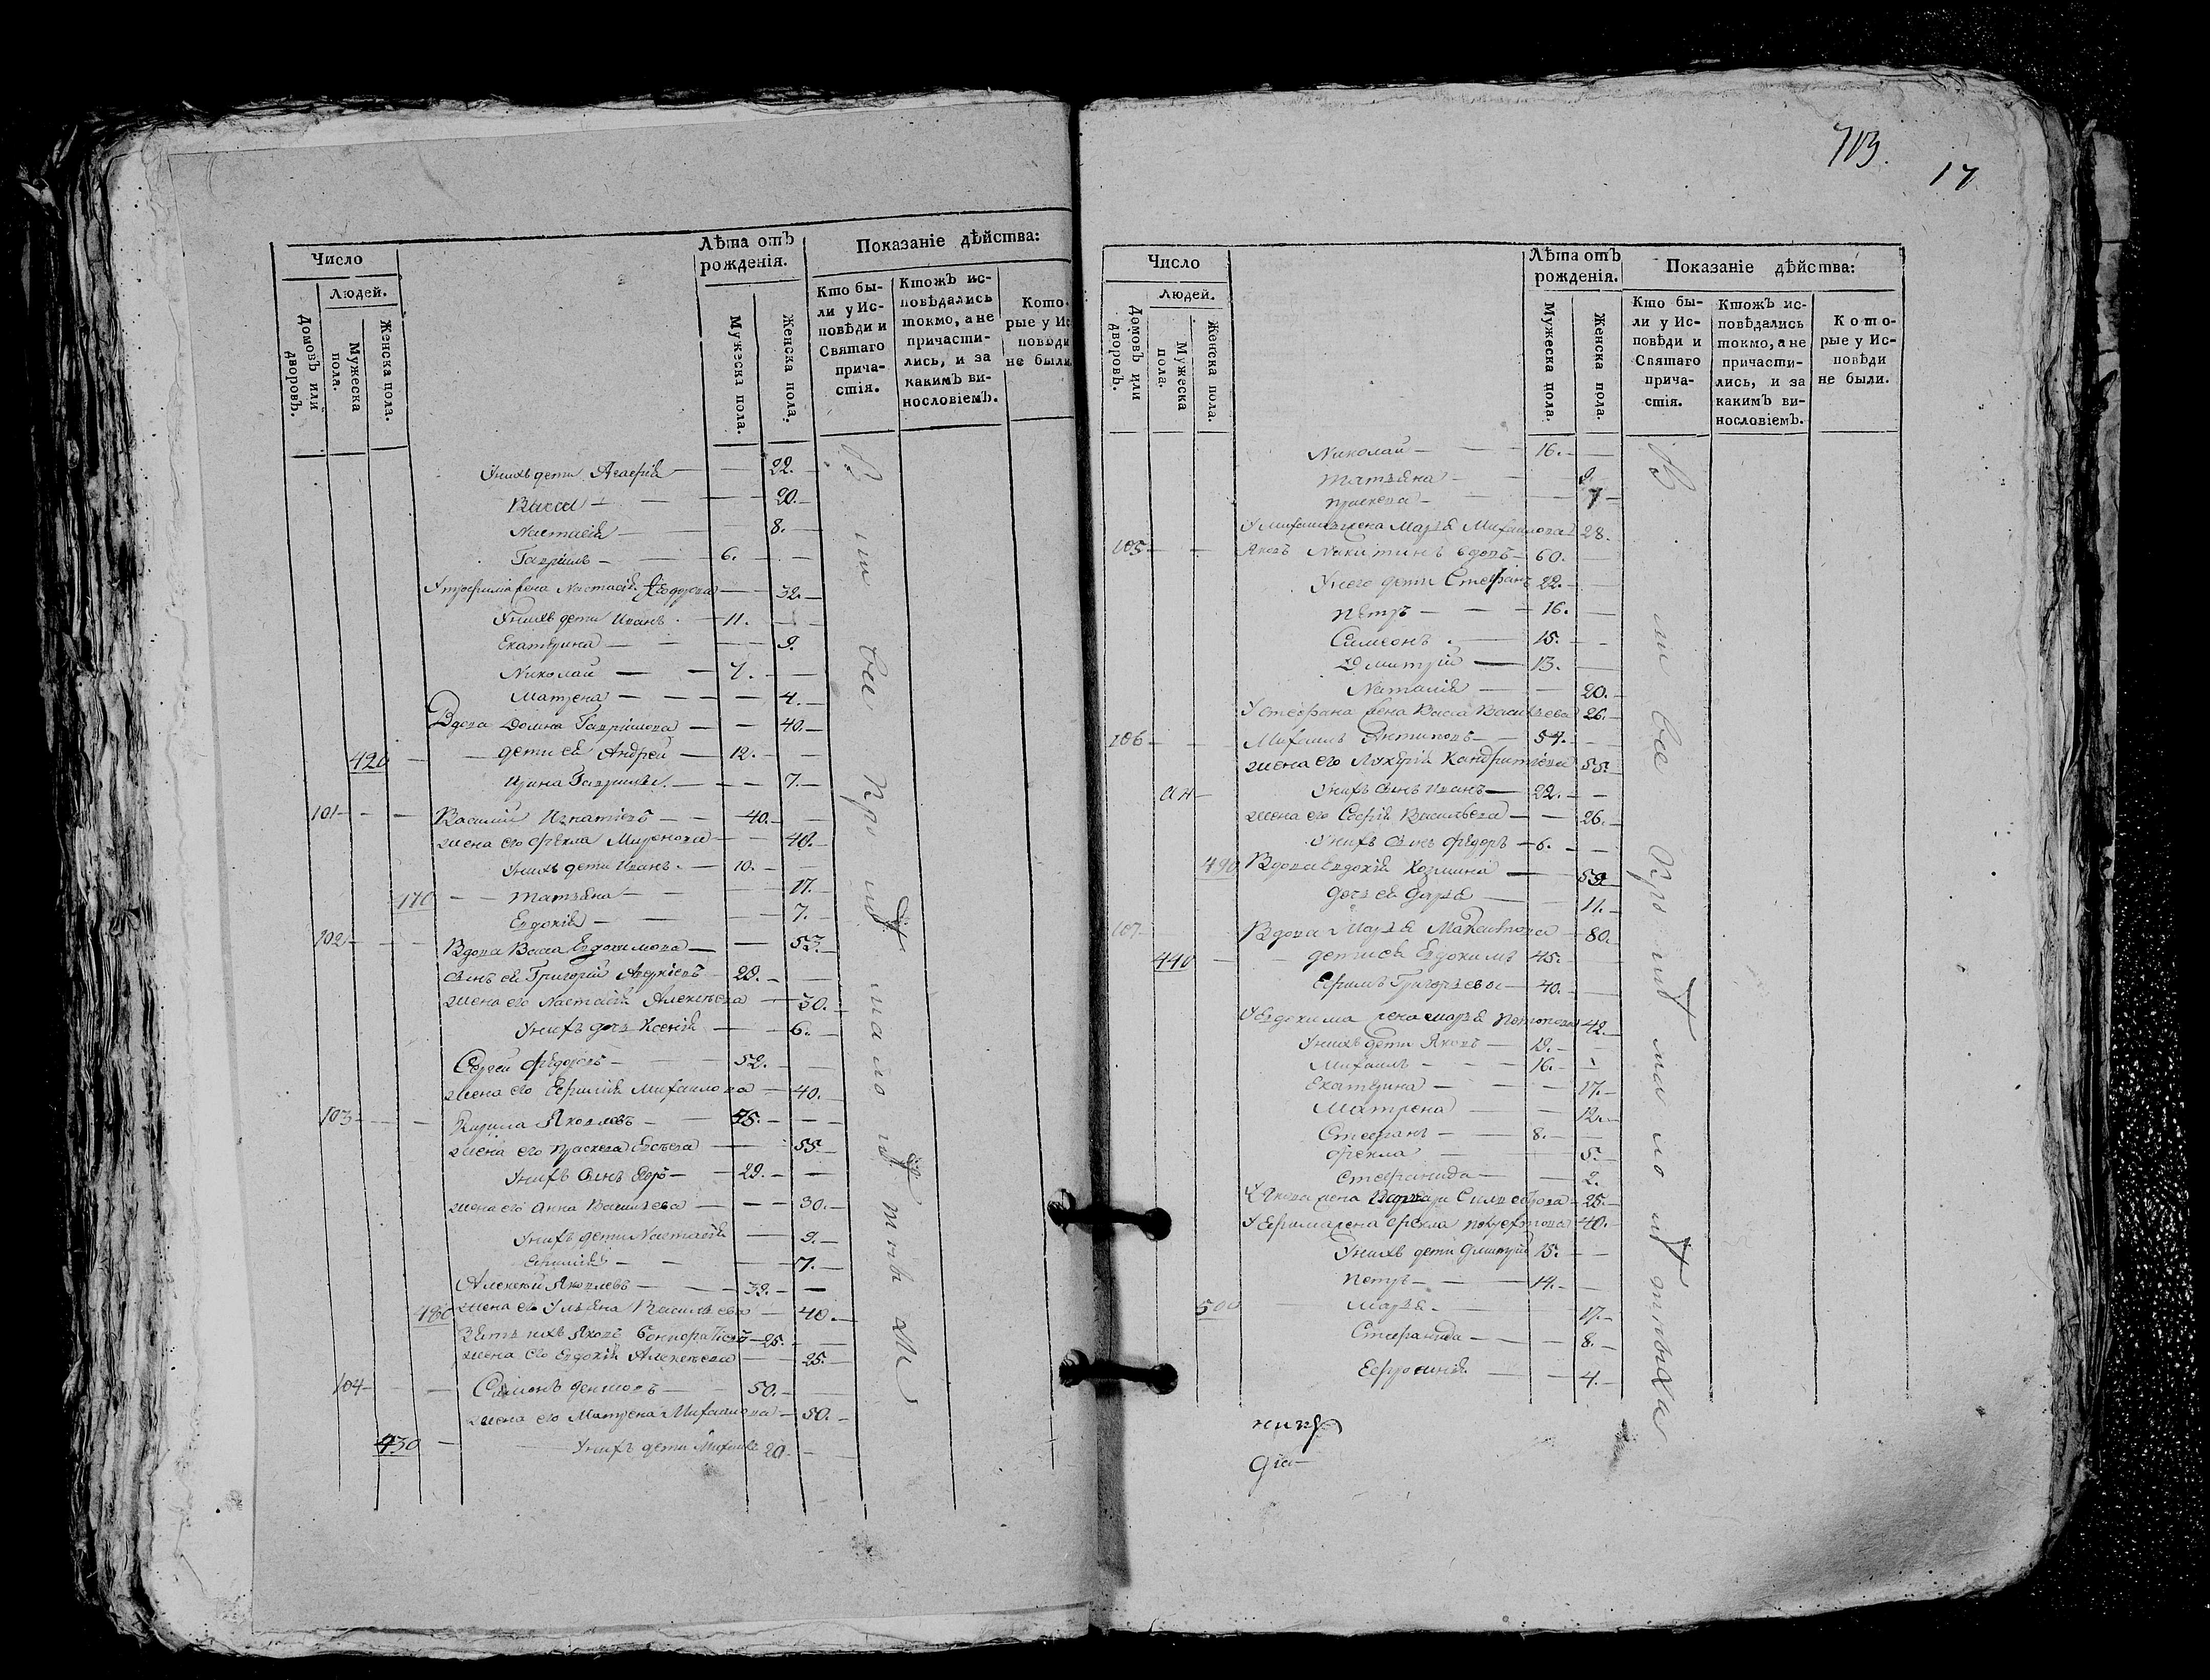 Число
Людей.
Домовъ или дворовъ.
Мужеска пола.
Женска пола.
Лѣта отъ рожденія.
Мужеска пола.
Женска пола.
Показаніе дѣйства:
Кто бы-
ли у Ис-
повѣди и
Святаго
прича-
стія.
Ктожъ ис-
повѣдались
токмо, а не
причасти-
лись, и за
какимъ ви-
нословіемъ.
Кото-
рые у Ис
повѣди
не были
У нихъ дети Агафія — — 22. —
Васса — — — 20. —
Настасія — — 8. —
Гаврiилъ — — 6. — —
У трофима жена Настасія Феодорова — — 32. —
У нихъ дети Иванъ. — 11. — —
Екатерина — — — 9.
Николай — — 7. — —
Матрена — — — 4. —
Вдова Домна Гаврiилова — — 40. —
420 — — дети ея Андрей — 12. — —
Ирина Гавриловы. — — 7. —
101 — — — Василий Игнатiевъ — — 40. — —
жена его Фекла Миронова — — 40. —
У нихъ дети Иванъ. — 10. —
470 — — Татьяна — — — 17. —
Евдокія — — — 7. —
102 — — — Вдова Васса Евдокимова — — 53. —
сынъ ея Григорий — 29. — —
жена его Настасія Алексѣева — 30. —
У нихъ дочь Ксенія — — 6. —
Сергей Федоровъ — — 52. — —
жена его Евфимія Михаилова — 40. —
103 — — — Кирила Яковлевъ — — 55. — —
жена его Праскева — — 55. —
У нихъ сынъ Егоръ — — 29. — —
жена его Анна Васильева — — — 30. —
У нихъ дети Настасія — 9. —
Евфимія — — — 7. —
Алексѣй Яковлевъ — — 39. — —
480 жена его Ульяна Васильева — 40. —
Зять ихъ Яковъ — 25. — —
жена его Евдокія Алексѣева — 25. —
104 — — — Симонъ — — 50. — —
жена его Матрена Михаилова — 50. —
430 — — У нихъ дети Михаилъ 20. —
713.
17
Число
Людей.
Домовъ или дворовъ.
Мужеска пола.
Женска пола.
Лѣта отъ
рожденія.
Мужеска пола.
Женска пола.
Показаніе дѣйства:
Кто бы-
ли у Ис-
повѣди и
Святаго
прича-
стія.
Ктожъ ис-
повѣдались
токмо, а не
причасти-
лись, и за
какимъ ви-
нословіемъ.
Кото-
рые у Ис-
повѣди
не были.
Николай — — 16. — —
Татьяна — — 9.
Праскева — — 7 —
У михаила жена Марья Михаилова 28. —
105 — — Яковъ Никитинъ вдовъ — 60. —
У него дети Стефанъ 22. —
Петръ — — — 16. —
Симеонъ . — 15. — —
Дмитрій — 13. —
Наталія — — 20. —
У Стефана жена Васса Васильева 26. —
106 — — — Михаилъ Антиповъ — 54. — —
жена его Лукерія Кондратiева 55. —
У нихъ сынъ Иванъ — 22. — —
жена его Софія Васильева — — 26. —
У нихъ сынъ Федоръ — 6. — —
490 Вдова Евдокія Козмина — 59.
дочь ея Дарья — — 11. —
107 — — Вдова Марья — 80. —
440 — — дети ея Евдокимъ 45. —
Ефимъ Григорьевы — 40. —
У Евдокима жена марья 42. —
У нихъ дети Яковъ — 19. — —
Михаилъ — — — 16. —
Екатерина — — — 17. —
Матрена — — 12. —
Стефанъ — — 8. — —
Фекла — 5. —
Стефанида — — 2.
У Якова жена — 25. —
У Ефима жена Фекла — 40. —
У нихъ дети Дмитрий 15. — —
Петръ — — 14. —
500 — Марья — — 17. —
Стефанида — — — 8. —
Ефросинія — — 4. —